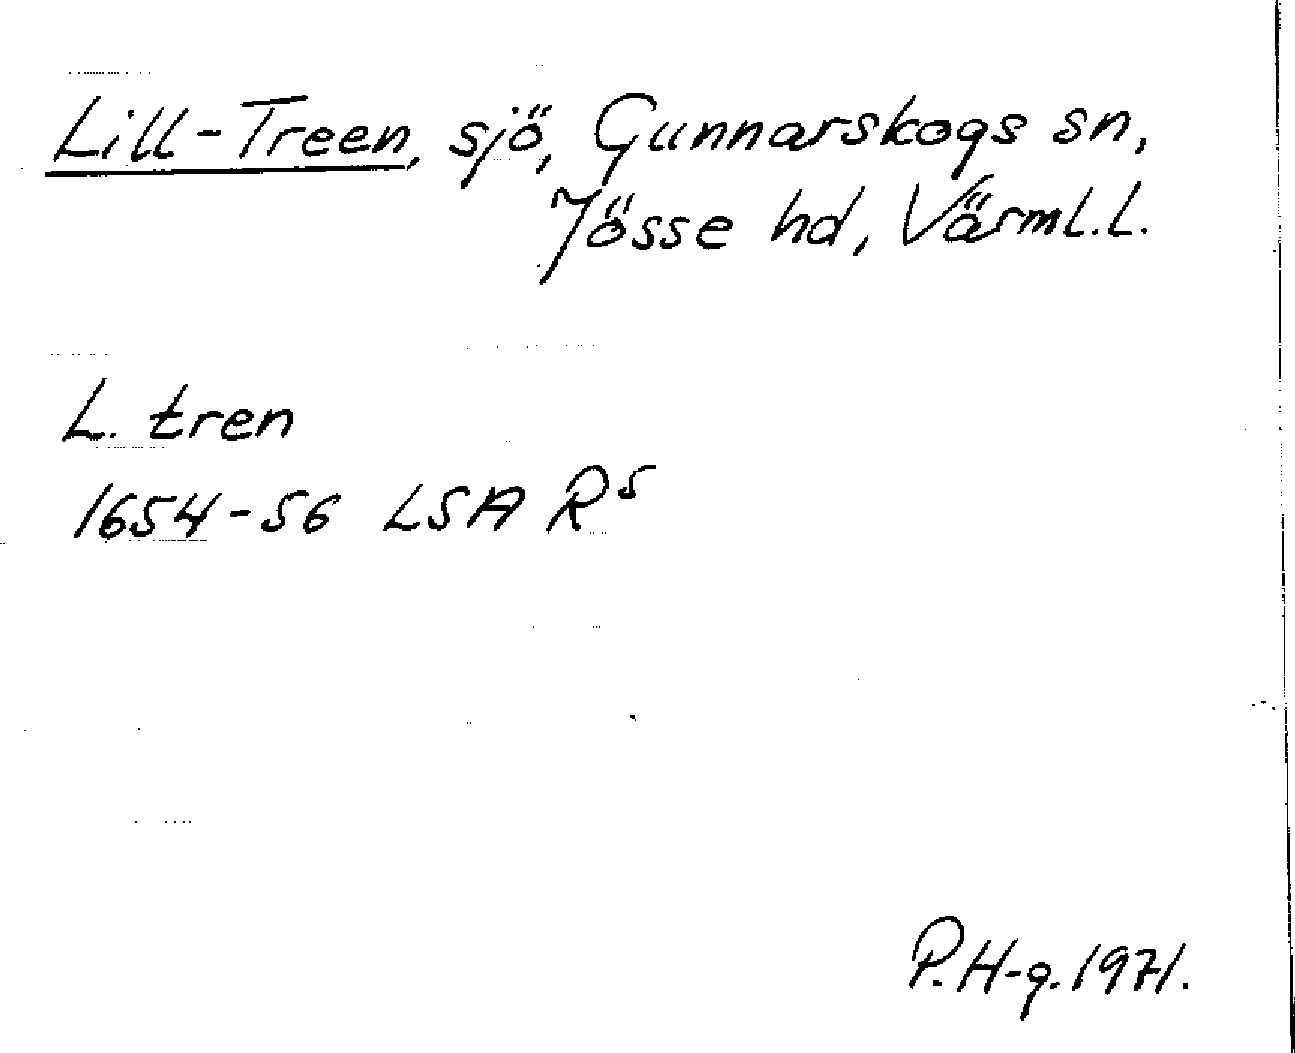 Lill-Treen, sjö, Gunnarskogs sn,
Jösse hd, Värml.l.
L. tren
1654-56 LSA R⁵
P.H-g. 1971.